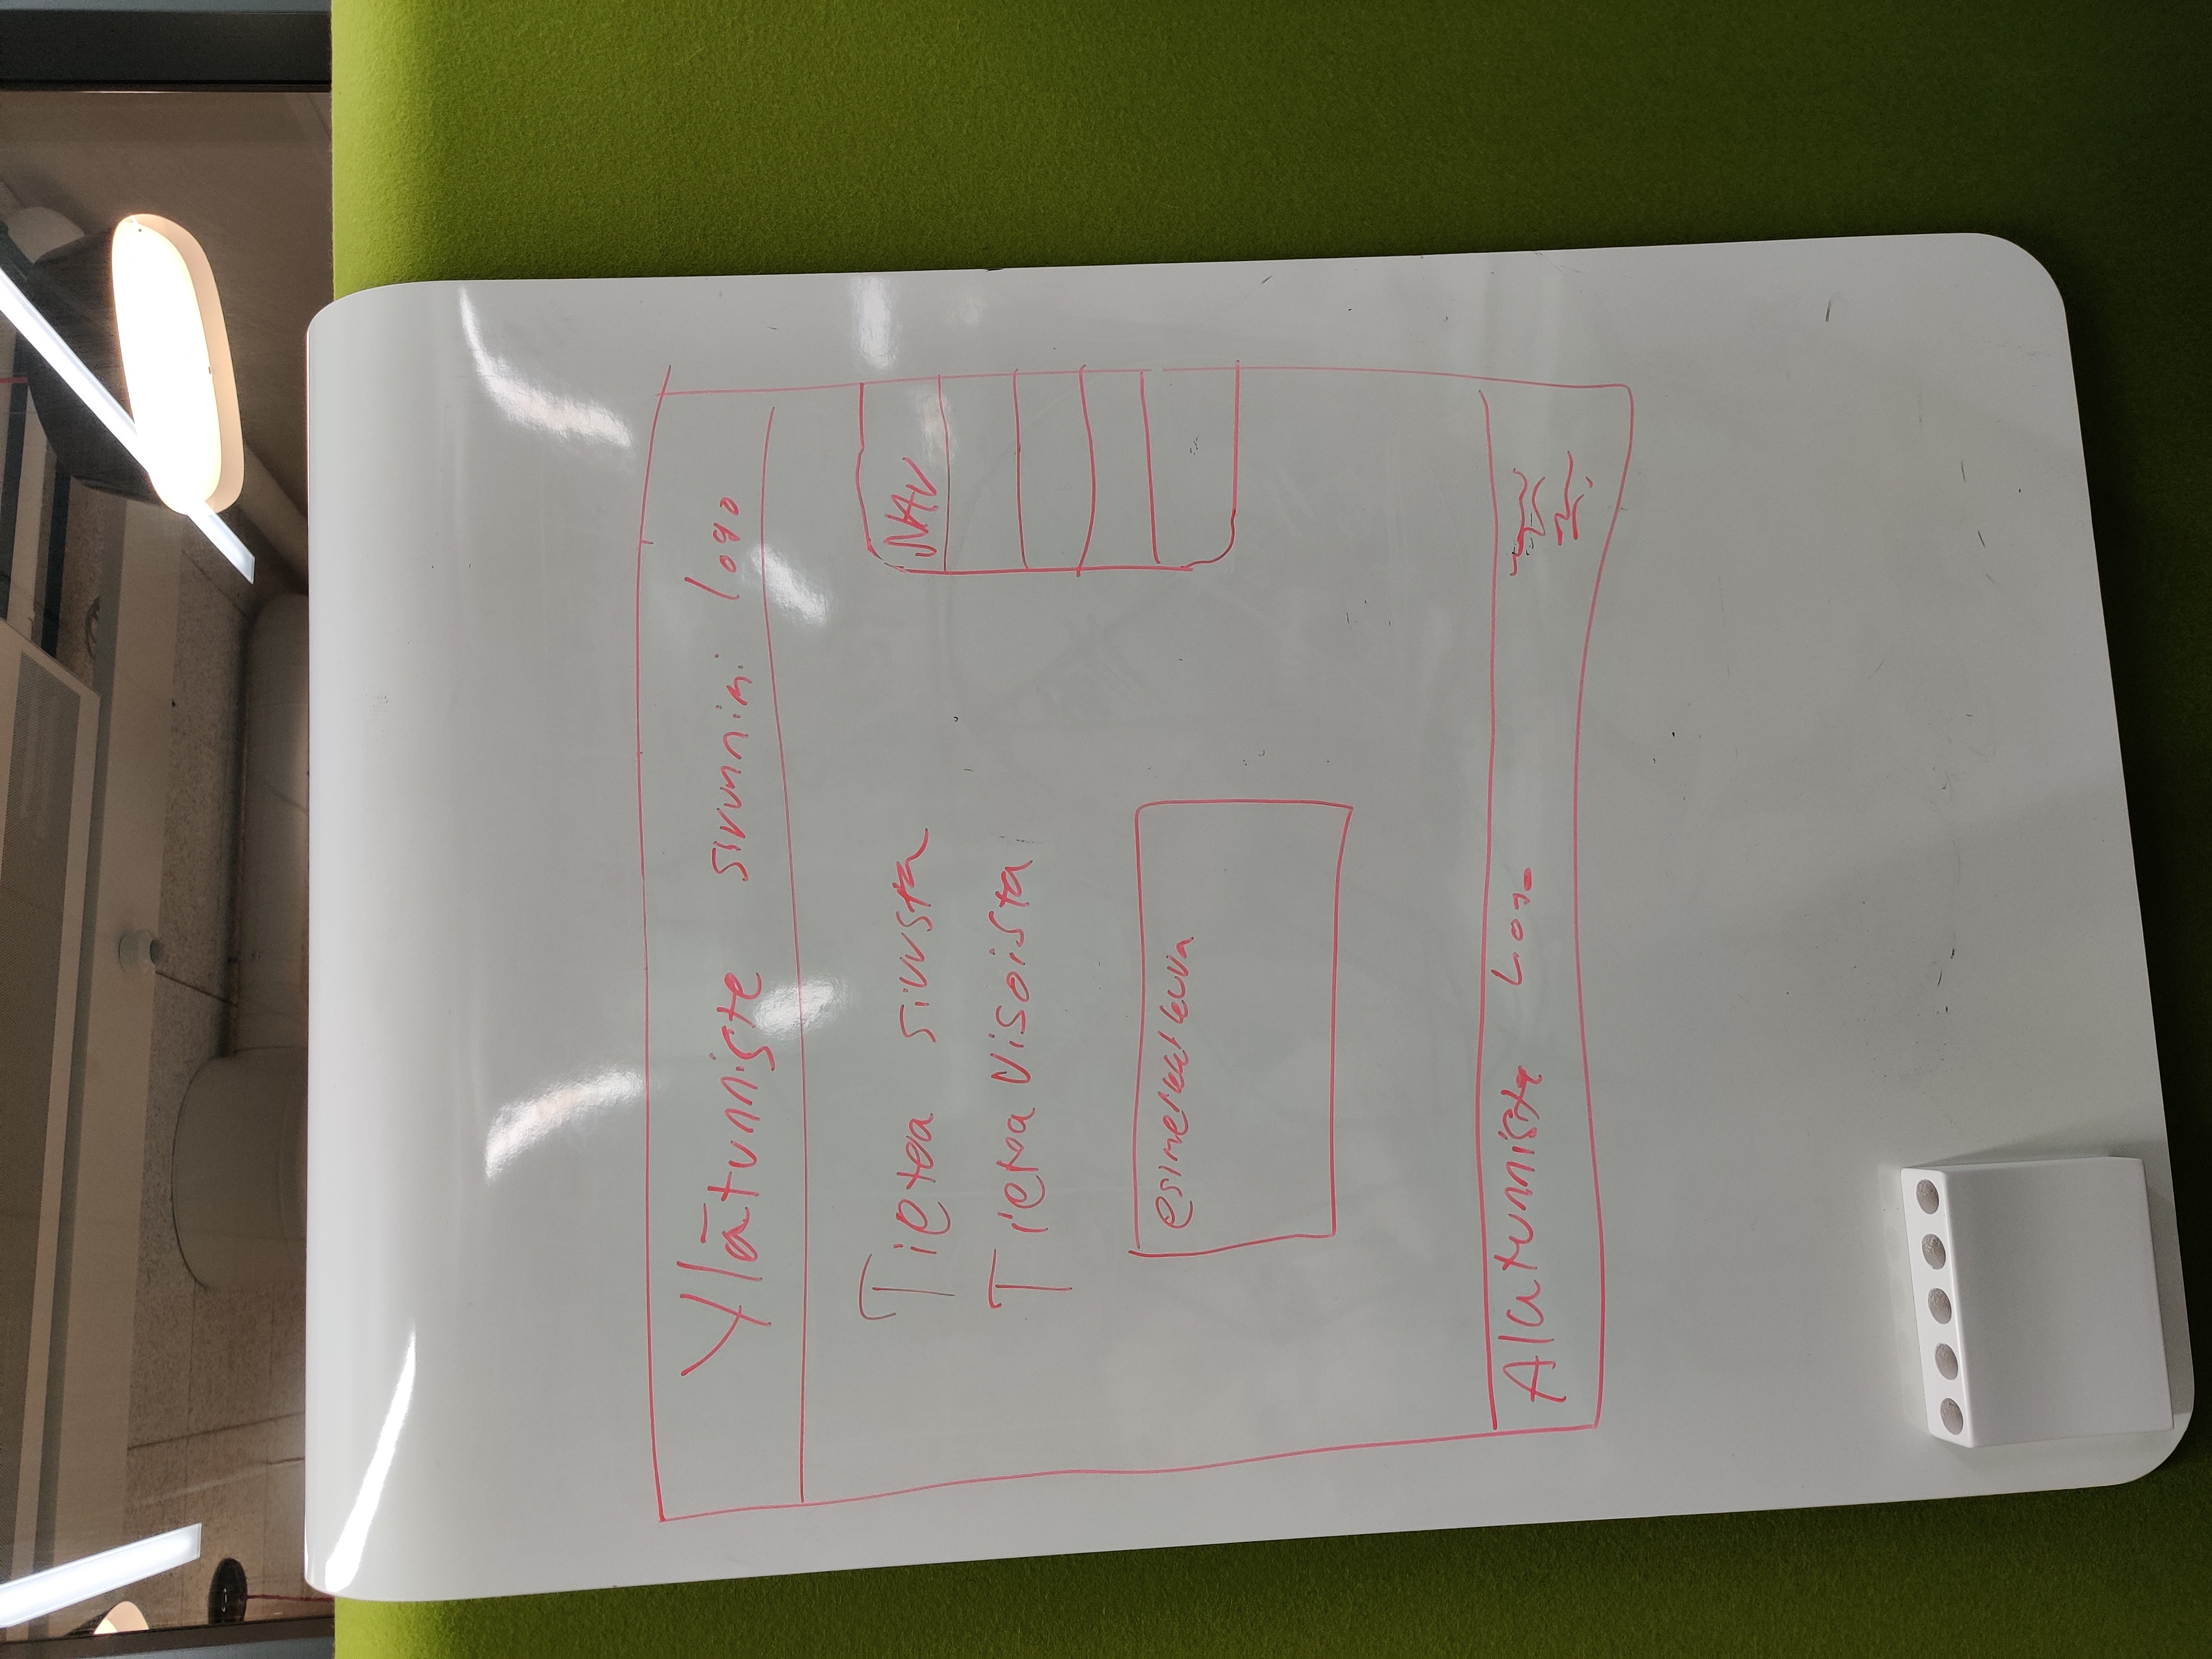 Ylätunniste sivunnimi logo
Tietoa sivusta
NAV
Tietoa visoista
esimerkkikuva
Alatunniste Logo